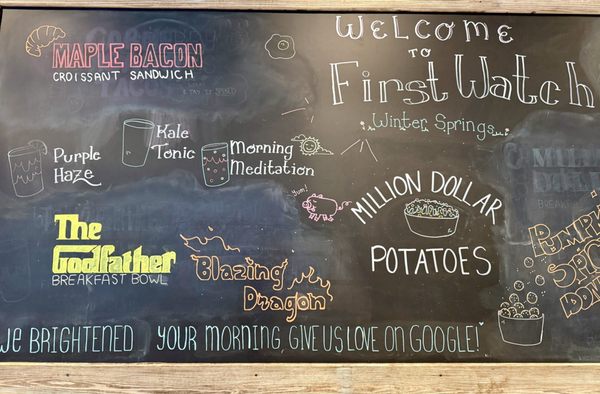 MAPLE BACON
CROISSANT SANDWICH
WELCOME
TO
First Watch
Winter Springs
Purple
Haze
Kale
Tonic
Morning
Meditation
Yum!
MILLION DOLLAR
POTATOES
The
Godfather
BREAKFAST BOWL
Blazing
Dragon
PUMPKIN
SPICE
DONUT
WE BRIGHTENED YOUR MORNING, GIVE US LOVE ON GOOGLE!